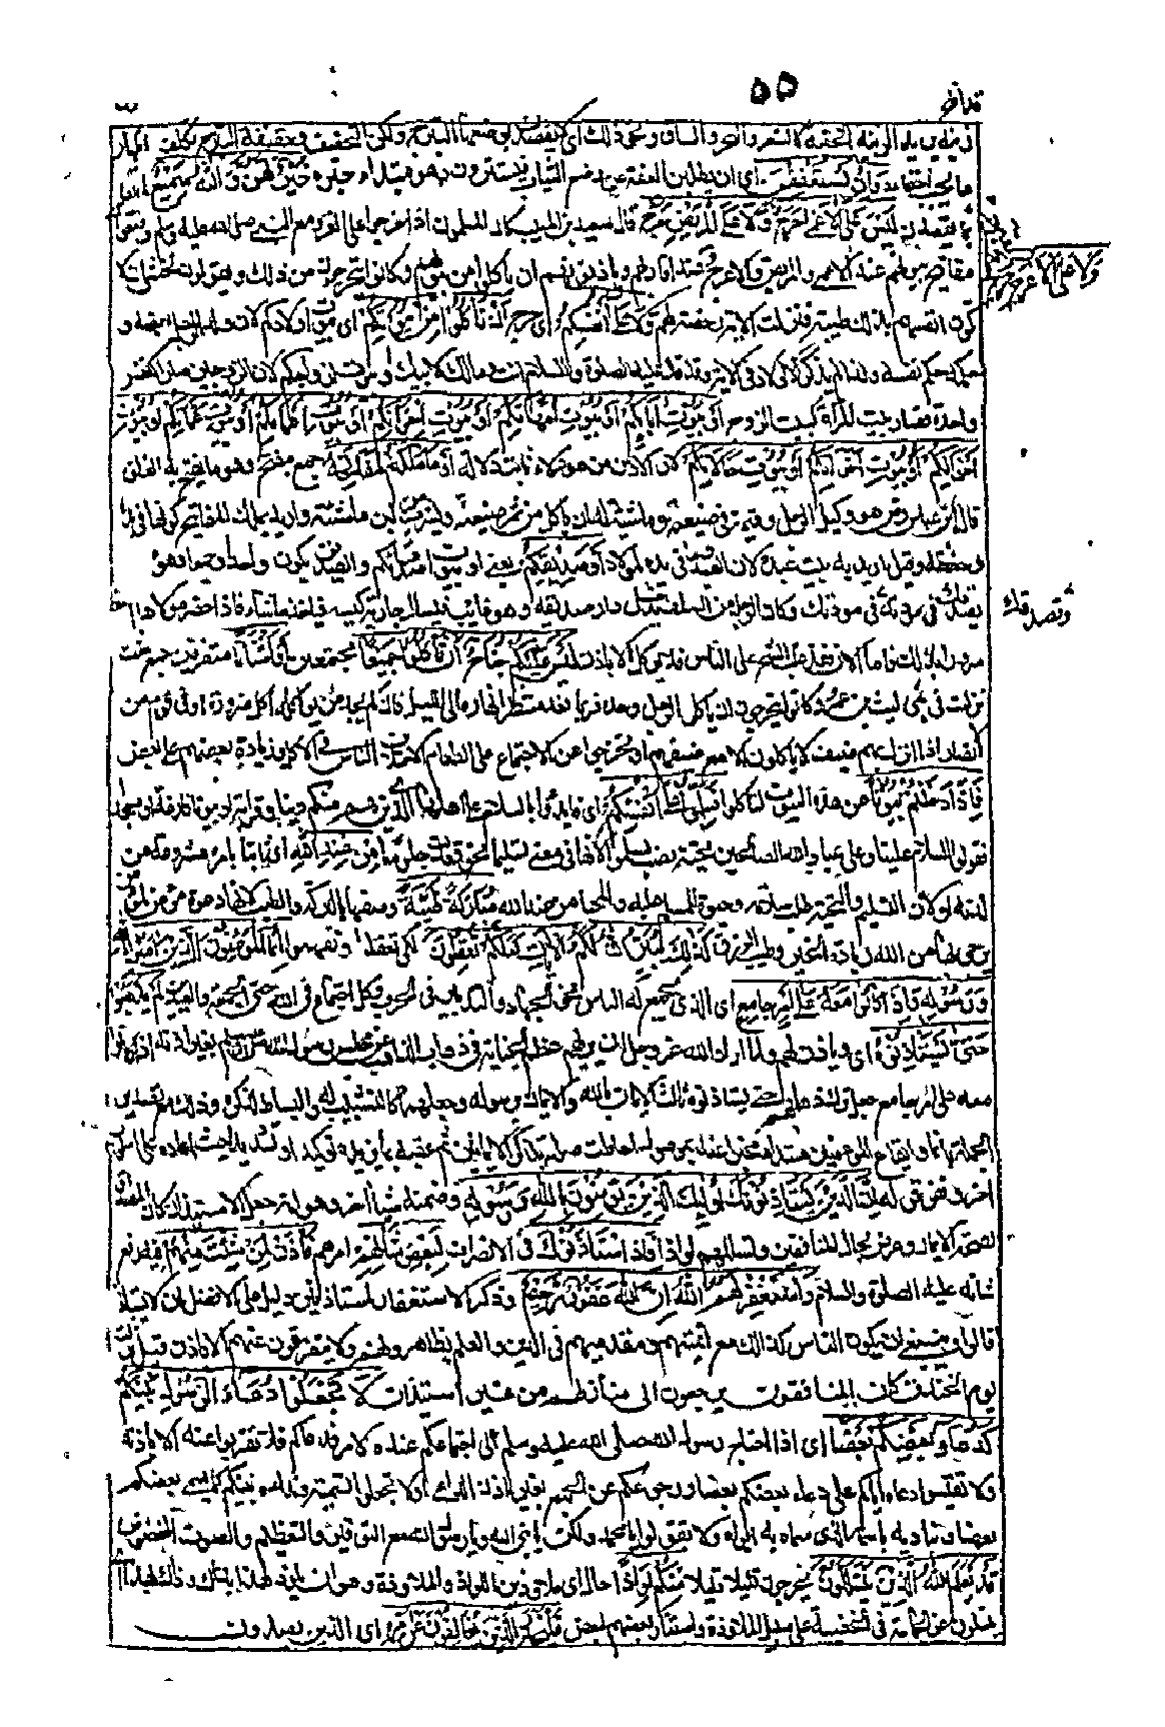 ٥٥
الزينة الخفية كالشعر والنحر والساق ونحو ذلك اى لا يقصدن بوضعها التبرج ولكن التخفف وحقيقة التبرج تكلف اظهار
ما يجب اخفاؤه وَاَنْ يَسْتَعْفِفْنَ اى ان يطلبن العفة عن وضع الثياب فيستترن وهو مبتدأ خبره خَيْرٌ لَهُنَّ وَاللهُ سَمِيعٌ
بما يقصدن لَيْسَ عَلَى الْاَعْمٰى حَرَجٌ وَلَا عَلَى الْمَرِيضِ حَرَجٌ قال سعيد بن المسيب كان المسلمون اذا خرجوا الى الغزو مع النبى صلى الله عليه وسلم وضعوا
ولا على الاعرج حرج
عند الاعمى والمريض والاعرج وعند اقاربهم وياذنونهم ان ياكلوا من بيوتهم وكانوا يتحرجون من ذلك ويقولون نخشى ان لا
تكون انفسهم بذلك طيبة فنزلت الاية رخصة لهم وَلَا عَلٰى اَنْفُسِكُمْ اى حرج اَنْ تَاْكُلُوا مِنْ بُيُوتِكُمْ اى بيوت اولادكم لان ولد الرجل بعضه و
حكمه حكم نفسه ولذا لم يذكر الاولاد فى الاية وقد قال عليه الصلوة والسلام انت ومالك لابيك او بيوت ازواجكم لان الزوجين صارا كنفس
واحدة فصار بيت المرأة كبيت الزوج اَوْ بُيُوتِ اٰبَائِكُمْ اَوْ بُيُوتِ اُمَّهَاتِكُمْ اَوْ بُيُوتِ اِخْوَانِكُمْ اَوْ بُيُوتِ اَعْمَامِكُمْ اَوْ بُيُوتِ عَمَّاتِكُمْ اَوْ بُيُوتِ
اَخْوَالِكُمْ اَوْ بُيُوتِ خَالَاتِكُمْ لان الاذن من هؤلاء ثابت دلالة اَوْ مَا مَلَكْتُمْ مَفَاتِحَهُ جمع مفتح وهو ما يفتح به الغلق
قال ابن عباس رض هو وكيل الرجل وقيمه فى ضيعته وماشيته له ان ياكل من ثمر ضيعته ويشرب من لبن ماشيته واريد بملك المفاتح كونها فى يده
وحفظه وقيل اريد به بيت عبده لان العبد وما فى يده لمولاه اَوْ صَدِيقِكُمْ يعنى او بيوت اصدقائكم والصديق يكون واحدا وجمعا وهو من
يصدقك فى مودته وكان الرجل من السلف يدخل دار صديقه وهو غائب فيسال جاريته كيسه فياخذ ما شاء فاذا حضر مولاها
وتصدقه
سرورا بذلك فاما الان فقد غلب الشح على الناس فلا يؤكل الا باذن لَيْسَ عَلَيْكُمْ جُنَاحٌ اَنْ تَاْكُلُوا جَمِيعًا مجتمعين اَوْ اَشْتَاتًا متفرقين جمع شت
نزلت فى بنى ليث بن عمرو كانوا يتحرجون ان ياكل الرجل وحده فربما قعد منتظرا نهاره الى الليل فان لم يجد من يواكله اكل ضرورة او فى قوم من
الانصار اذا نزل بهم ضيف لا ياكلون الا مع ضيفهم او تحرجوا عن الاجتماع على الطعام لاختلاف الناس فى الاكل وزيادة بعضهم على بعض
فَاِذَا دَخَلْتُمْ بُيُوتًا من هذه البيوت لتاكلوا فَسَلِّمُوا عَلٰى اَنْفُسِكُمْ اى فابدؤا بالسلام على اهلها الذين هم منكم دينا وقرابة او بيوتا فارغة او مسجدا
فقولوا السلام علينا وعلى عباد الله الصالحين تحية نصب بسلموا لانها فى معنى تسليما نحو قعدت جلوسا مِنْ عِنْدِ اللهِ اى ثابتة بامره مشروعة من
لدنه او لان التسليم والتحية طلب سلامة وحيوة للمسلم عليه والمحيا من عند الله مُبَارَكَةً طَيِّبَةً وصفها بالبركة والطيب لانها دعوة مؤمن لمؤمن
يرجى بها من الله زيادة الخير وطيب الرزق كَذٰلِكَ يُبَيِّنُ اللهُ لَكُمُ الْاٰيَاتِ لَعَلَّكُمْ تَعْقِلُونَ لكى تعقلوا وتفهموا اِنَّمَا الْمُؤْمِنُونَ الَّذِينَ اٰمَنُوا بِاللهِ
وَرَسُولِهٖ وَاِذَا كَانُوا مَعَهُ عَلٰى اَمْرٍ جَامِعٍ اى الذى يجمع له الناس نحو الجهاد والتدبير فى الحرب وكل اجتماع فى الله حتى الجمعة والعيدين لَمْ يَذْهَبُوا
حَتّٰى يَسْتَاْذِنُوهُ اى وياذن لهم ولما اراد الله عز وجل ان يريهم عظم الجناية فى ذهاب الذاهب عن مجلس رسول الله صلى الله عليه وسلم بغير اذنه اذا كانوا
معه على امر جامع جعل ترك ذهابهم حتى يستاذنوه ثالث الايمان بالله والايمان برسوله وجعلهما كالتسبيب له والبساط لذكره وذلك مع تصدير
الجملة بانما وايقاع المؤمنين مبتدأ مخبرا عنه بموصول احاطت صلته بذكر الايمانين ثم عقبه بما يزيده توكيدا وتشديدا حيث اعاده على اسلوب
اخر وهو قوله اِنَّ الَّذِينَ يَسْتَاْذِنُونَكَ اُولٰئِكَ الَّذِينَ يُؤْمِنُونَ بِاللهِ وَرَسُولِهٖ وضمنه شيئا اخر وهو انه جعل الاستيذان كالمصداق
لصحة الايمان وعرض بحال المنافقين وتسللهم لواذا فَاِذَا اسْتَاْذَنُوكَ فى الانصراف لِبَعْضِ شَاْنِهِمْ امرهم فَاْذَنْ لِمَنْ شِئْتَ مِنْهُمْ فيه رفع
شانه عليه الصلوة والسلام وَاسْتَغْفِرْ لَهُمُ اللهَ اِنَّ اللهَ غَفُورٌ رَحِيمٌ وذكر الاستغفار للمستاذنين دليل على الافضل ان لا يستاذن
قالوا وينبغى ان يكون الناس كذلك مع ائمتهم ومقدميهم فى الدين والعلم يظاهرونهم ولا يتفرقون عنهم الا باذن قيل نزلت
يوم الخندق كان المنافقون يرجعون الى منازلهم من غير استيذان لَا تَجْعَلُوا دُعَاءَ الرَّسُولِ بَيْنَكُمْ
كَدُعَاءِ بَعْضِكُمْ بَعْضًا اى اذا احتاج رسول الله صلى الله عليه وسلم الى اجتماعكم عنده لامر فدعاكم فلا تفرقوا عنه الا باذنه
ولا تقيسوا دعاءه اياكم على دعاء بعضكم بعضا ورجوعكم عن المجمع بغير اذن الداعى او لا تجعلوا تسميته ونداءه بينكم كما يسمى بعضكم
بعضا ويناديه باسمه الذى سماه به ابواه ولا تقولوا يا محمد ولكن يا نبى الله ويا رسول الله مع التوقير والتعظيم والصوت المخفوض
قَدْ يَعْلَمُ اللهُ الَّذِينَ يَتَسَلَّلُونَ يخرجون قليلا قليلا مِنْكُمْ لِوَاذًا حال اى ملاوذين اللواذ والملاوذة وهو ان يلوذ هذا بذاك وذاك بهذا اى
يتسللون عن الجماعة فى الخفية على سبيل الملاوذة واستتار بعضهم ببعض فَلْيَحْذَرِ الَّذِينَ يُخَالِفُونَ عَنْ اَمْرِهٖ اى الذين يصدون